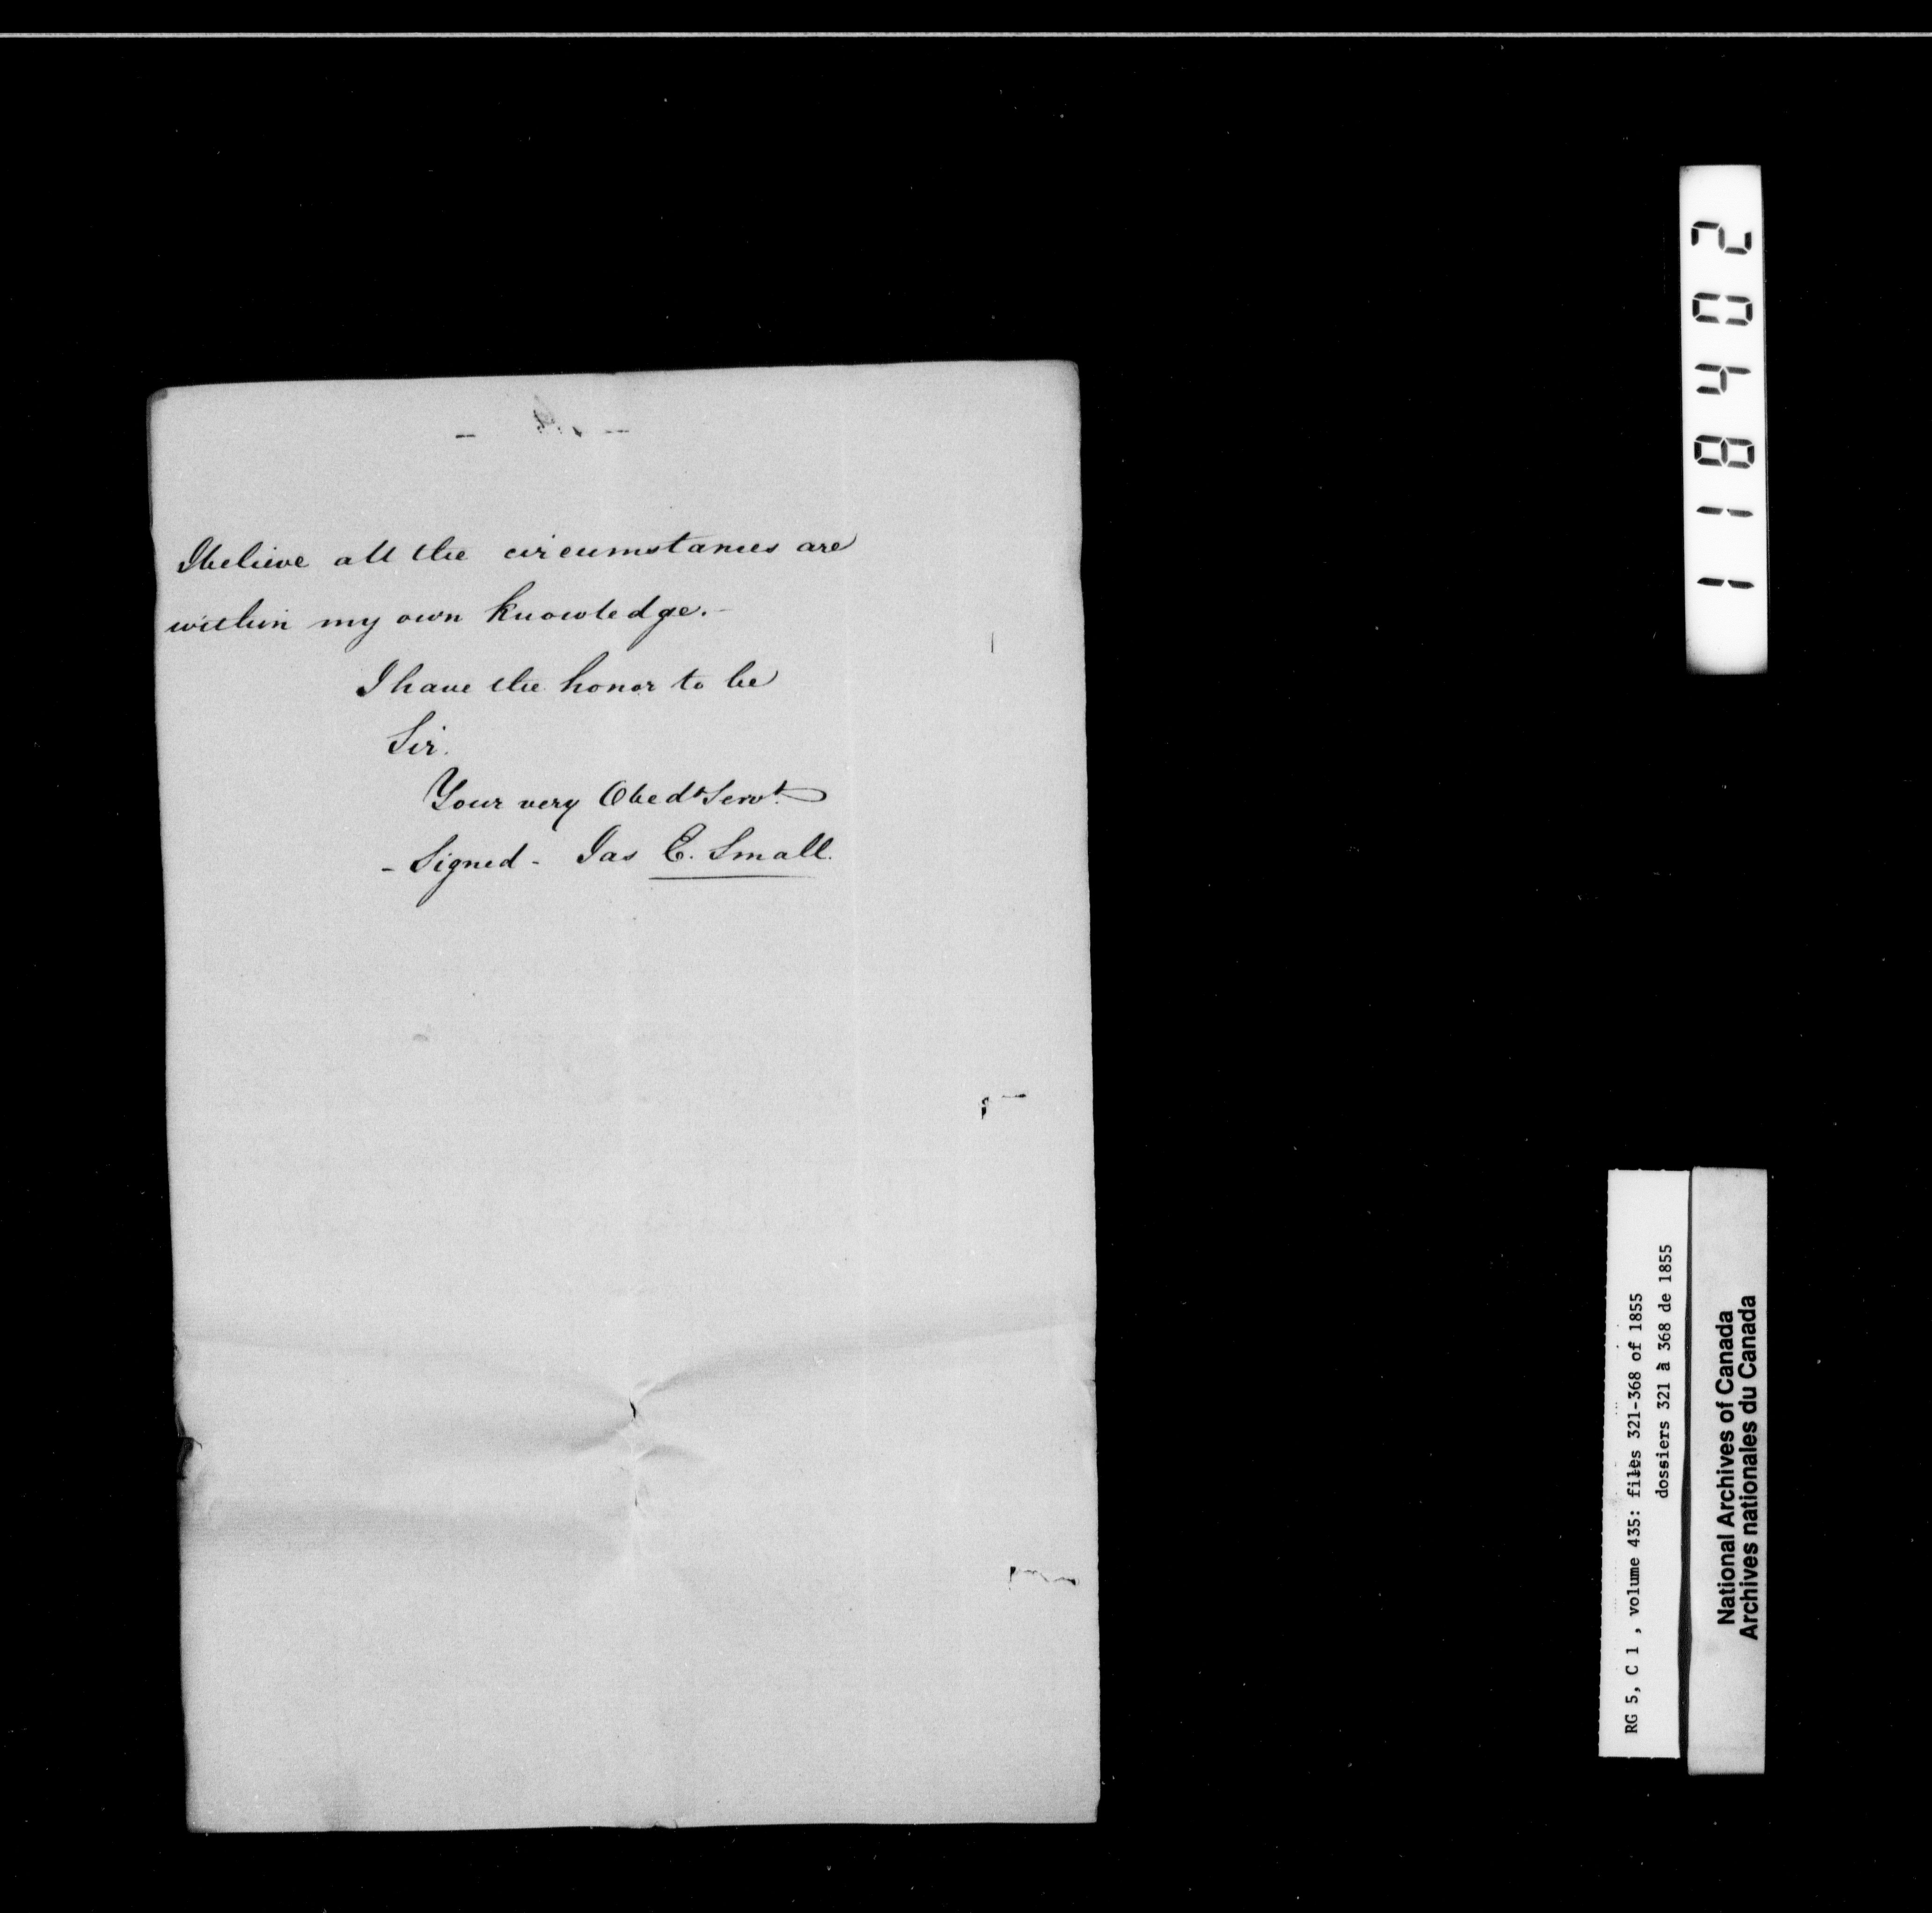 I believe all the circumstances are
within my own knowledge.-
I have the honor to be
Sir.
Your very Obedt Servt.
- Signed - Jas C. Small.
204811
RG 5, C 1 , volume 435: files 321-368 of 1855
dossiers 321 à 368 de 1855
National Archives of Canada
Archives nationales du Canada